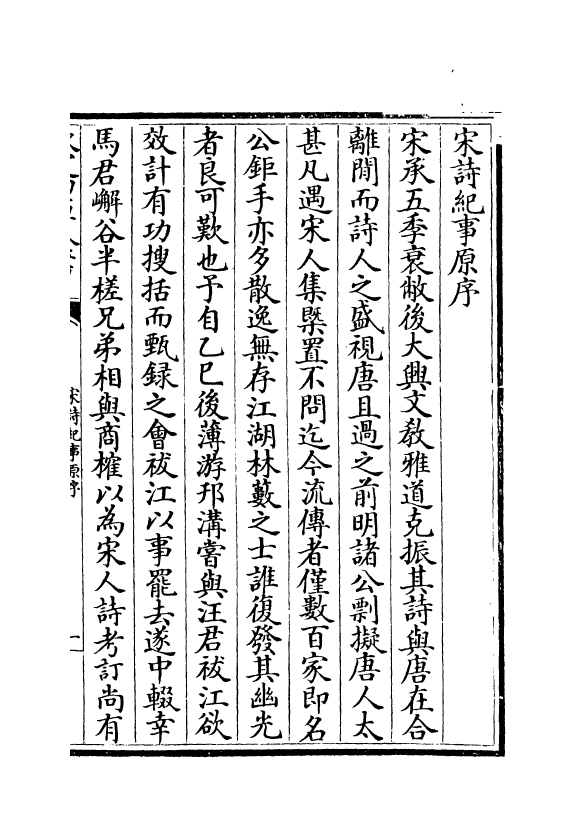 宋詩紀事原序
宋承五季衰敝後大興文教雅道克振其詩與唐在合
離閒而詩人之盛視唐且過之前明諸公剽擬唐人太
甚凡遇宋人集槩置不問迄今流傳者僅數百家即名
公鉅手亦多散逸無存江湖林藪之士誰復發其幽光
者良可歎也予自乙巳後薄游邗溝嘗與汪君祓江欲
效計有功搜括而甄録之會祓江以事罷去遂中輟幸
馬君嶰谷半槎兄弟相與商榷以為宋人詩考訂尚有
宋詩紀事原序
一